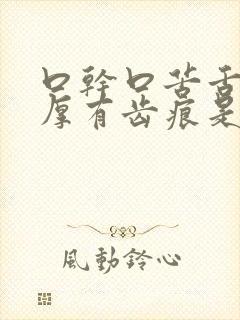 口幹口苦舌
厚有齿痕是
風動鈴心